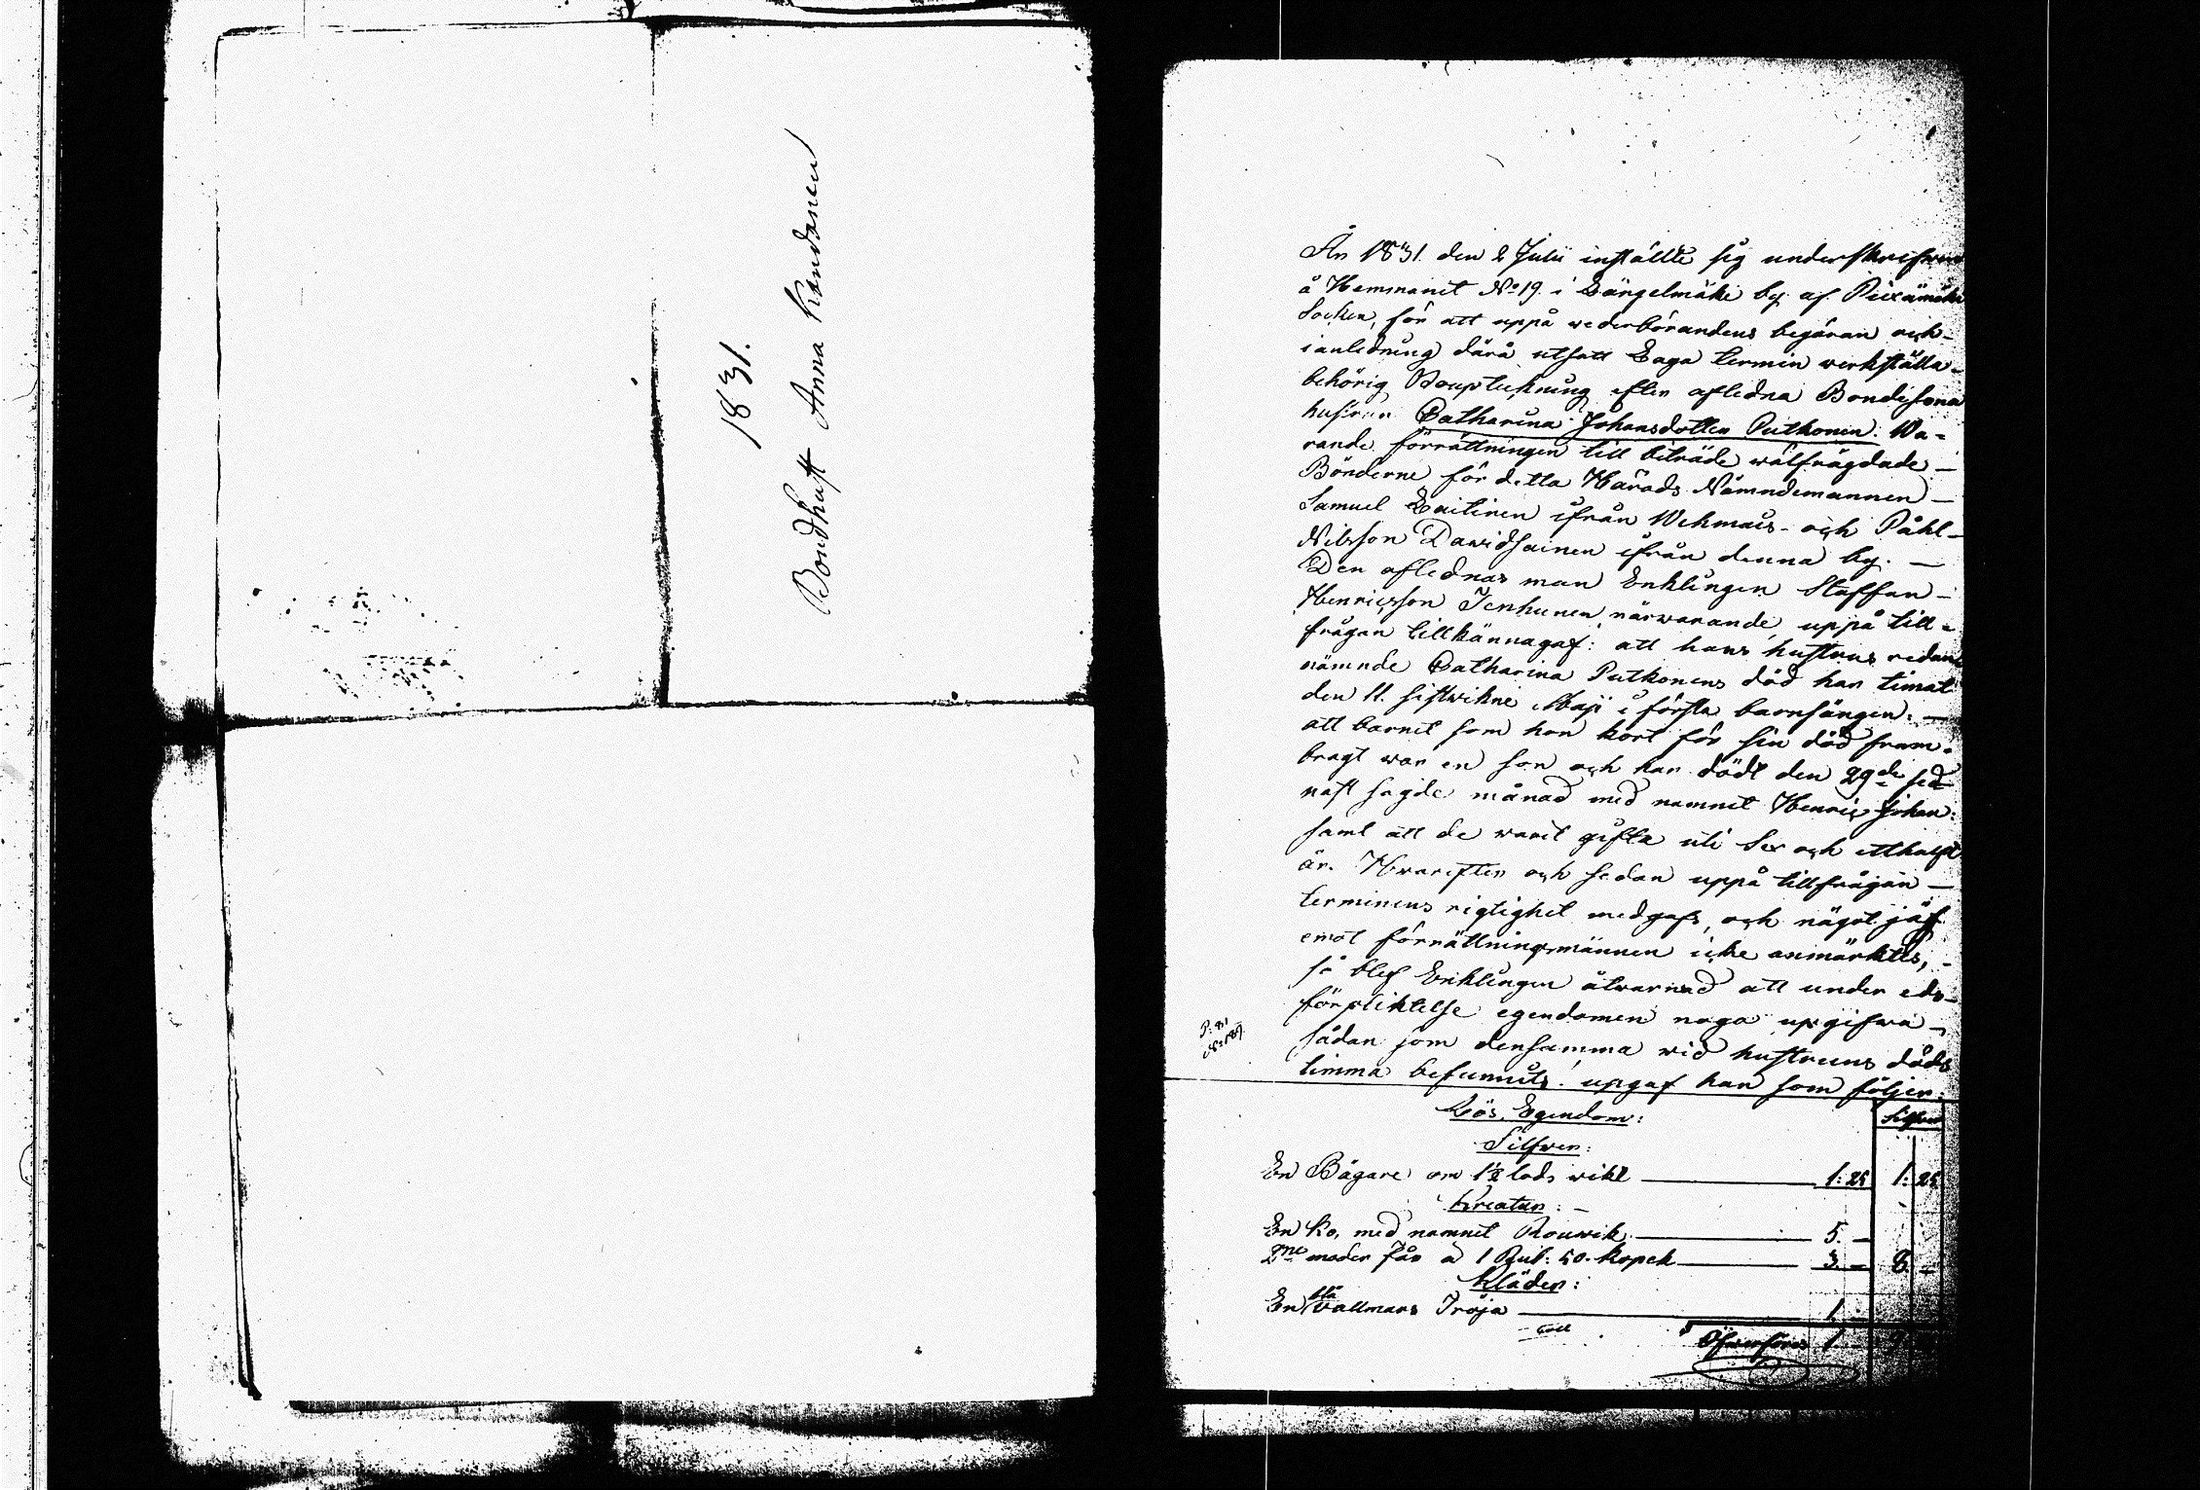 1831.
Bondhust Anna Kandanen
År 1831. den 2 Julii inställte sig underskrefwen
å Hemmanet No 19. i Längelmäki by af Piexämäki
Socken, för att uppå wederbörandens begäran och
i anledning därå utsatt Laga termin werkställa
behörig Bouptekning efter aflidna Bondesona
hustrun Catharina Johansdotter Putkonen. Wa-
rande förrättningen till biträde wälfrägdade
Bönderne för detta Härads Nämndemannen
Samuel Laitinen ifrån Wehmais och Påhl
Nilsson Dawidsainen ifrån denna by.
Den aflednas man Enklingen Staffan
Henricsson Ienhunen närwarande, uppå till-
frågan tillkännagaf: att hans hustrus redan
nämnde Catharina Putkonens död har timat
den 11. sistwikne Maji i första barnsängen.
att barnet som hon kort för sin död fram-
bragt war en son och har dödt den 29de sed-
nast sagde månad med namnet Henric Johan:
samt att de warit gifta uti Sex och etthalft
år. Hwarefter och sedan uppå tillfrågan
terminens rigtighet medgafs, och något jäf
emot förrättningsmännen icke anmärktes,
så blef Enklingen åtwarnad att under eds-
förpliktelse egendomen noga upgifwa
sådan som densamma wid hustruns döds
timma befunnits: upgaf han som följer:
Lös Egendom:
Silfwer
Silfwer:
En Bägare om 1½ lods wikt 1:25 1:25
Kreatur:
En ko, med namnet Rouwik 5. –
2ne moder får a 1 Rub: 50. kopek 3. – 8. –
Kläder:
En blå Vallmars Tröja 1. –
Öfwerföres 1